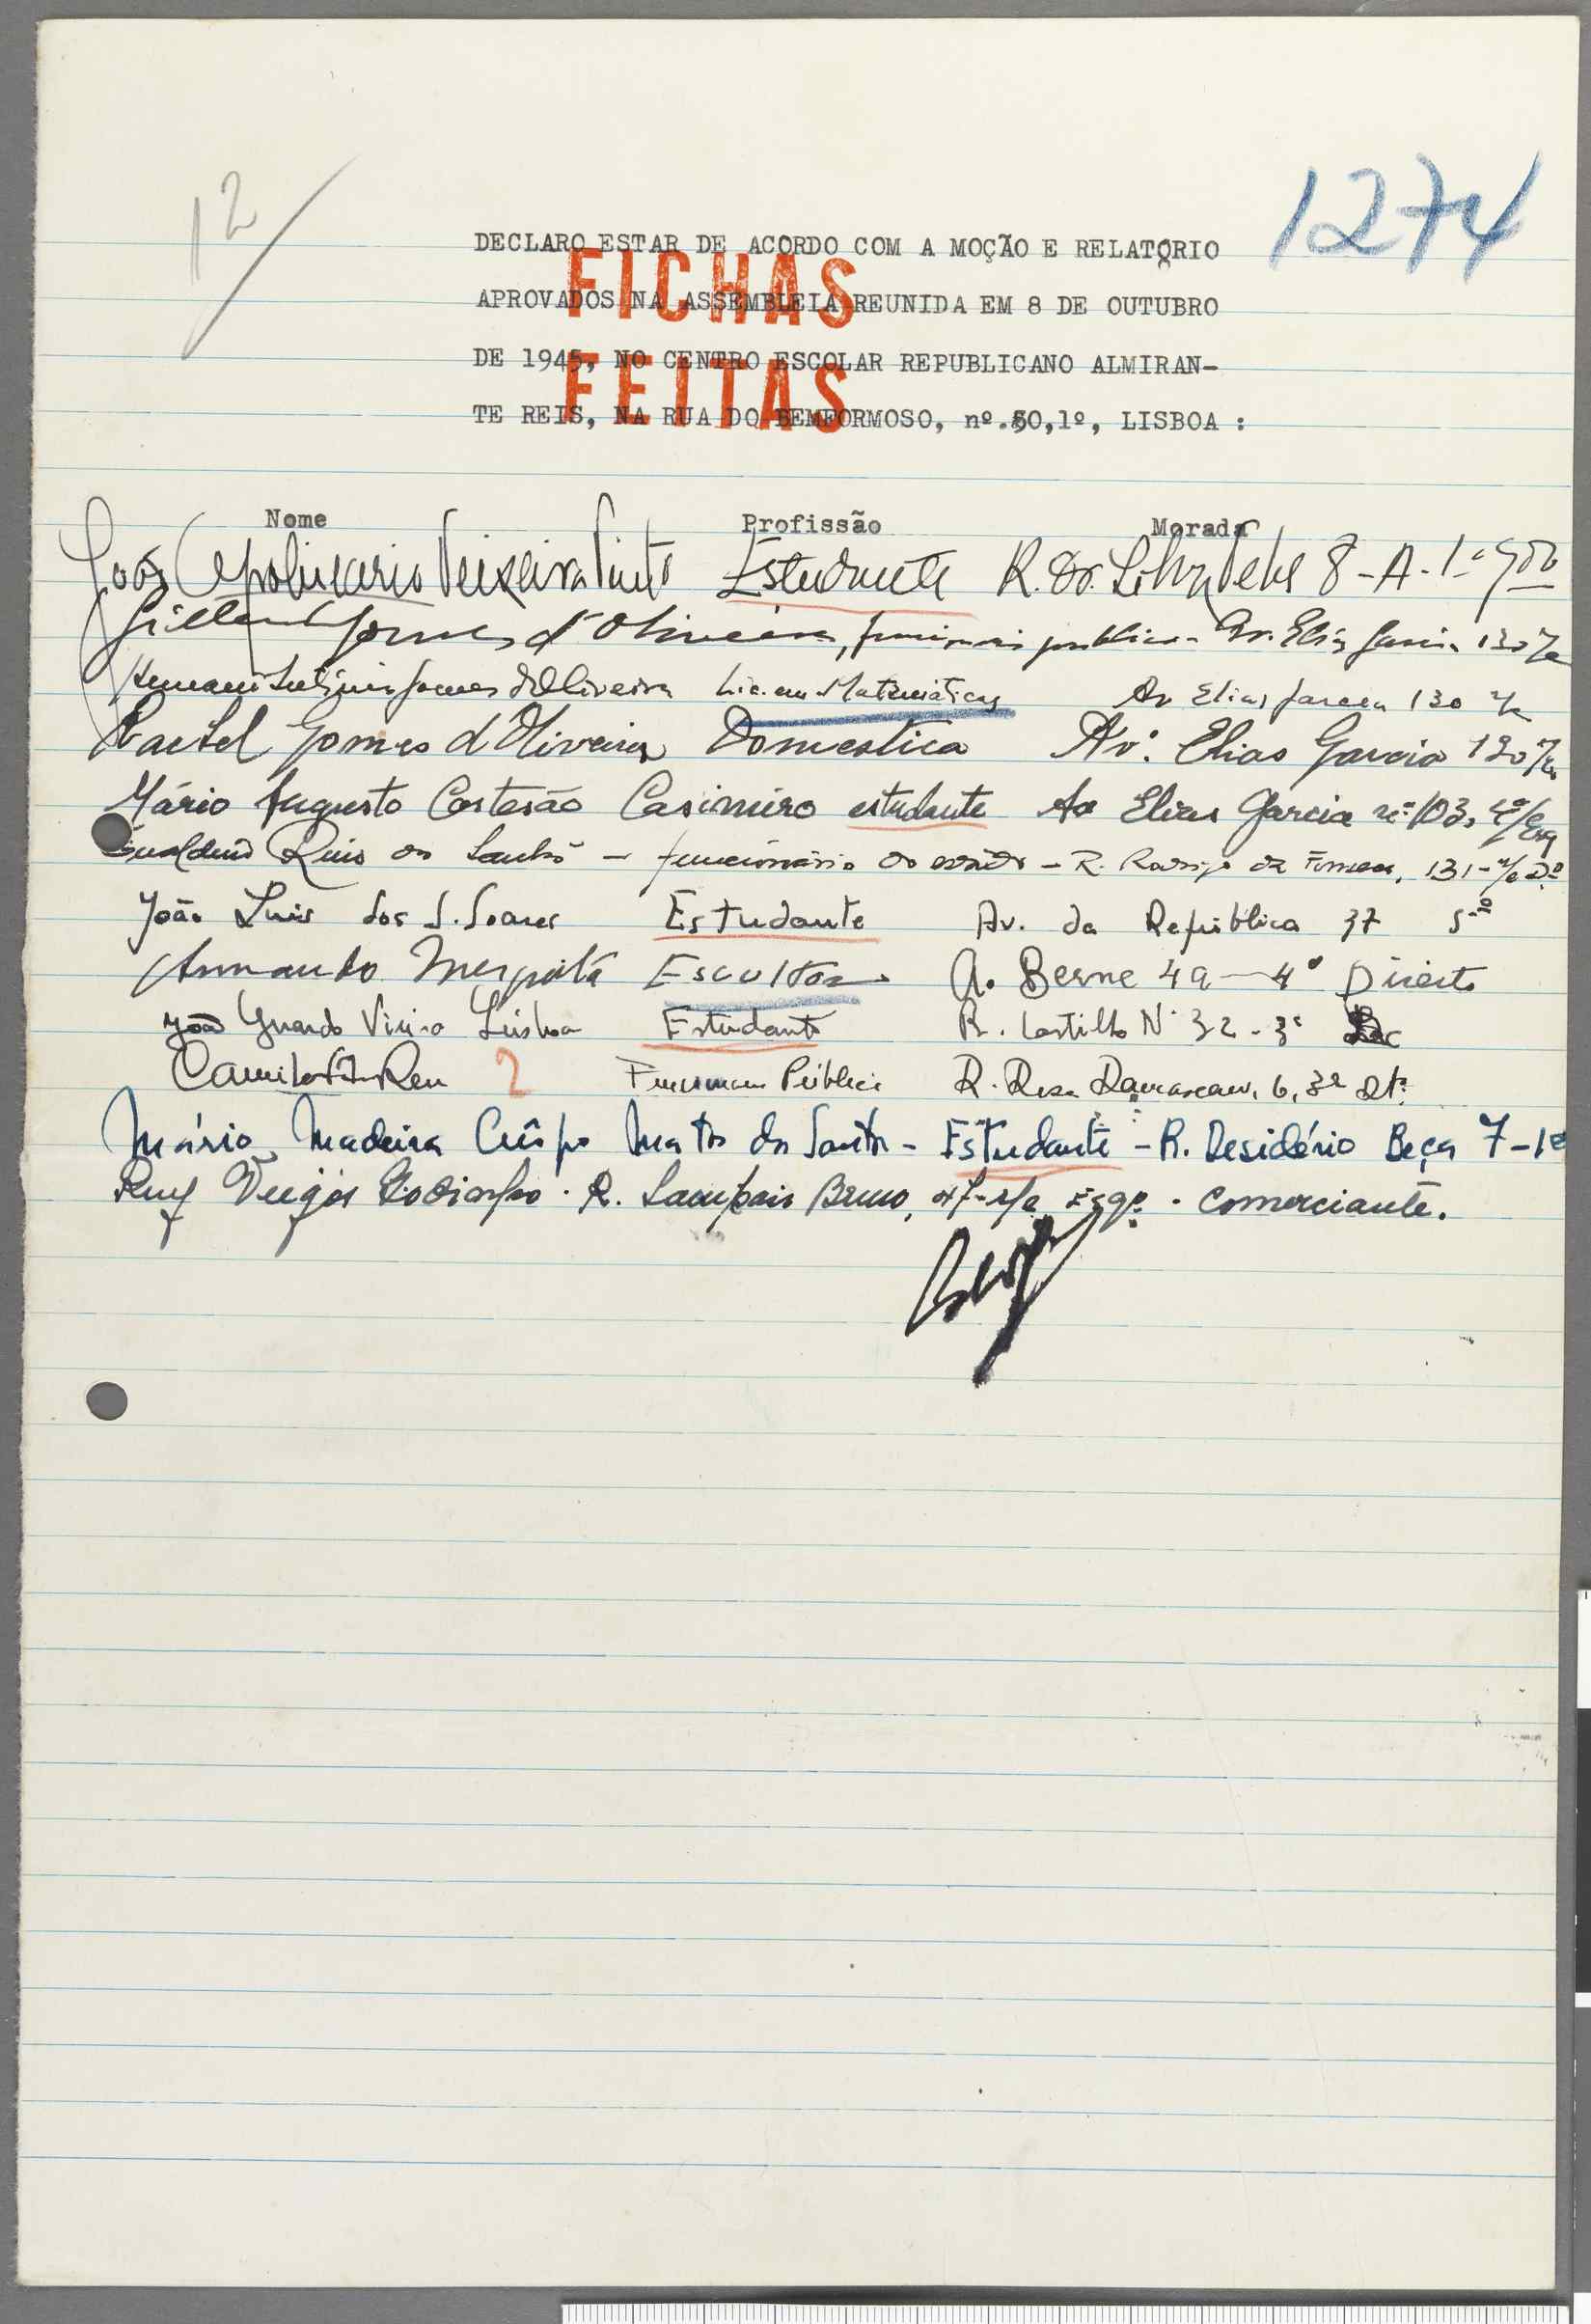 12
1274
DECLARO ESTAR DE ACORDO COM A MOÇÃO E RELATORIO
APROVADOS NA ASSEMBLEIA REUNIDA EM 8 DE OUTUBRO
DE 1945, NO CENTRO ESCOLAR REPUBLICANO ALMIRAN-
TE REIS, NA RUA DO BEMFORMOSO, nº.50,1º, LISBOA :
FICHAS
FEITAS
Nome Profissão Morada
João Apolinario Teixeira Pinto Estudante R. Dr. 8-A-1º
Gomes d'Oliveira, publico Av. Elias Garcia 130
Gomes d'Oliveira Lic. em Matemáticas Av Elias Garcia 130
Gomes d'Oliveira Domestica Av. Elias Garcia 130
Mário Augusto Cortesão Casimiro estudante Av Elias Garcia nº 103,
dos Santos - funcionário do estado - R. Rodrigo da Fonseca, 131
João Luis dos S. Soares Estudante Av. da República 37 5º
Armando Mesquita Escultor A. Berne 4a - 4º Direito
João Vieira Lisboa Estudante R. Castilho Nº 32-3º
Camilo 2 Funcionario Público R. Rosa Damasceno, 6, 3º Dt.
Mário Madeira Crêspo Matos dos Santos - Estudante - R. Desidério Beça 7-1º
Ruy R. Sampaio Bruno, r/c Esqº. Comerciante.